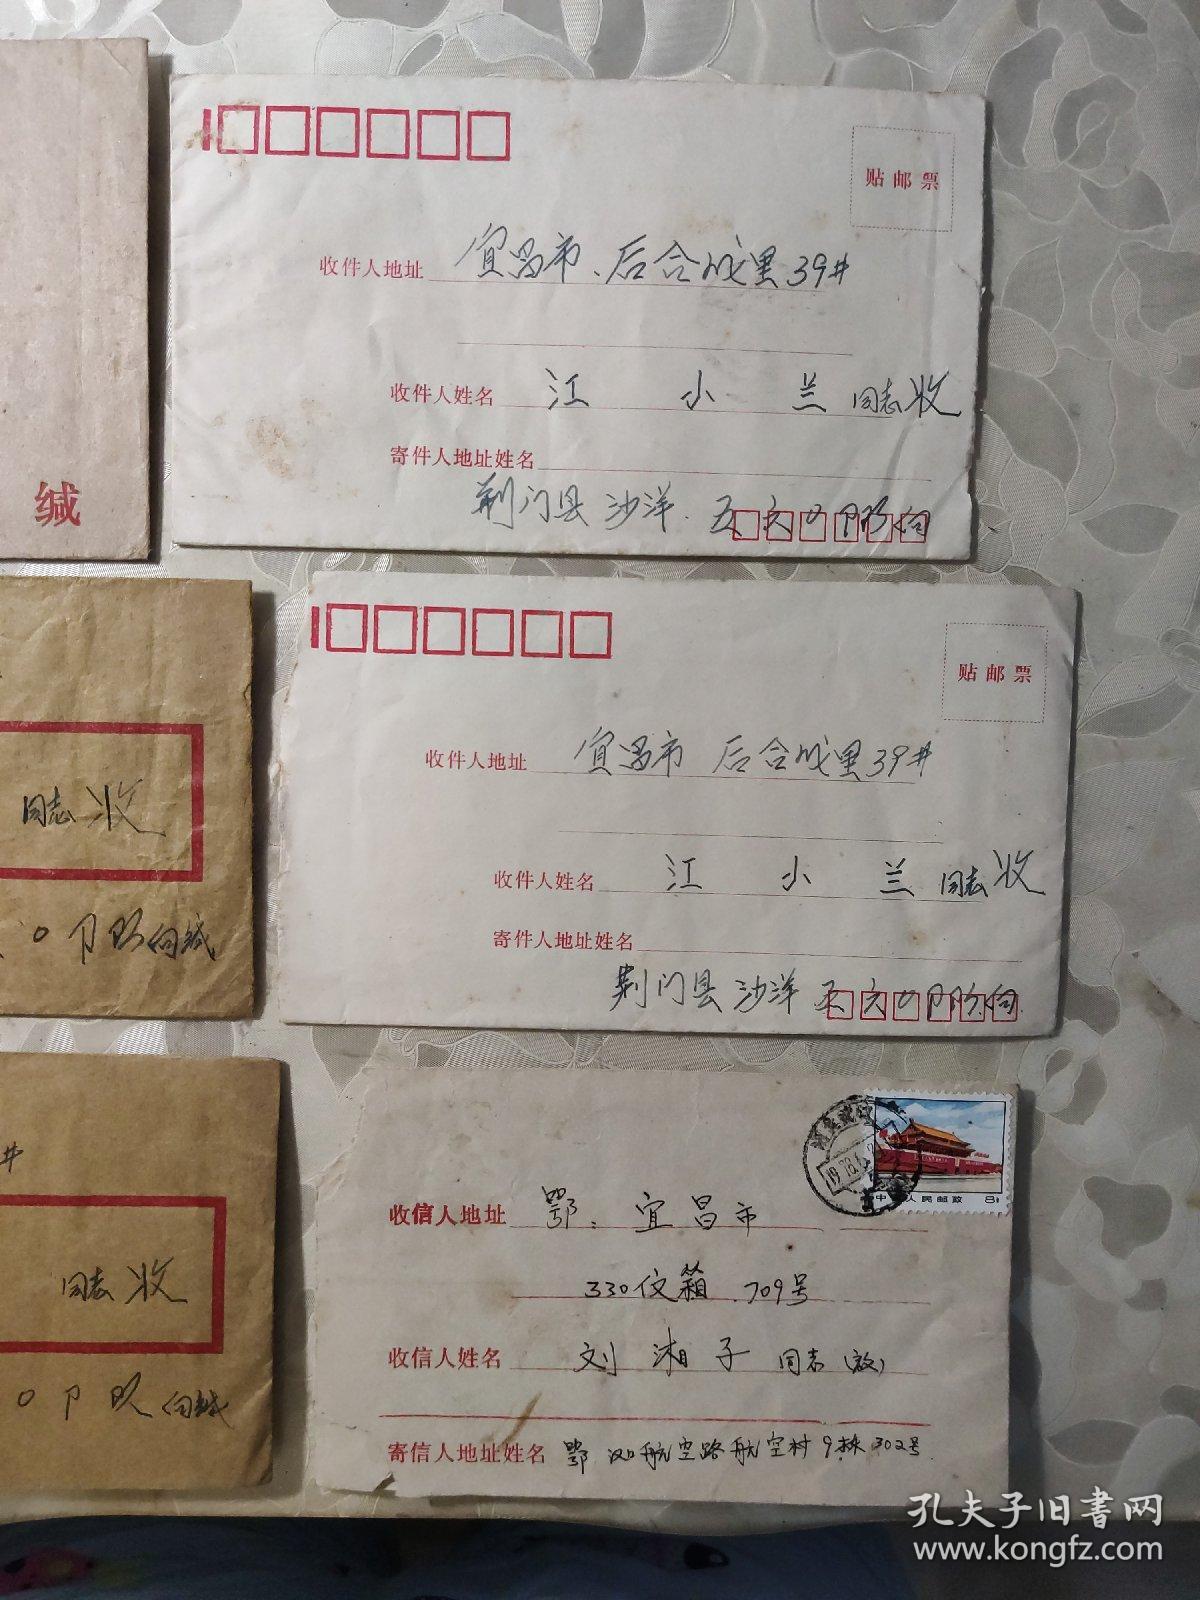 缄
贴邮票
收件人地址 宜昌市、后合成里39#
收件人姓名 江小兰同志收
寄件人地址姓名
荆门县沙洋.五六〇部队向
同志收
〇部队向缄
贴邮票
收件人地址 宜昌市 后合成里39#
收件人姓名 江小兰同志收
寄件人地址姓名
荆门县沙洋 五六〇部队向
#
同志收
〇部队向缄
中国人民邮政 8分
收信人地址 鄂:宜昌市
330信箱.709号
收信人姓名 刘湘子 同志(启)
寄信人地址姓名 鄂 汉口航空路航空村9栋302号
孔夫子旧书网
www.kongfz.com